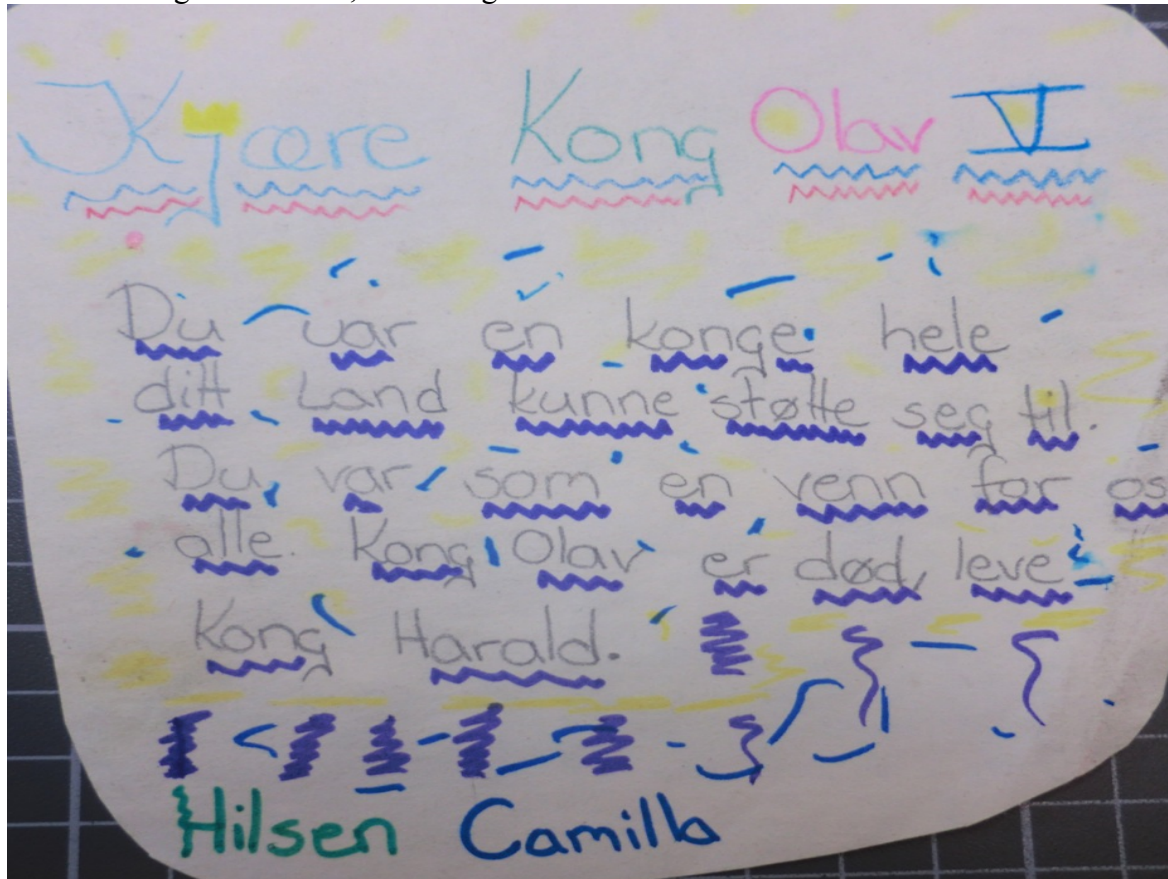 Kjære Kong Olav V
Du var en konge hele
ditt Land kunne støtte seg til.
Du var som en venn for os
alle. Kong Olav er død, leve
Kong Harald.
Hilsen Camilla